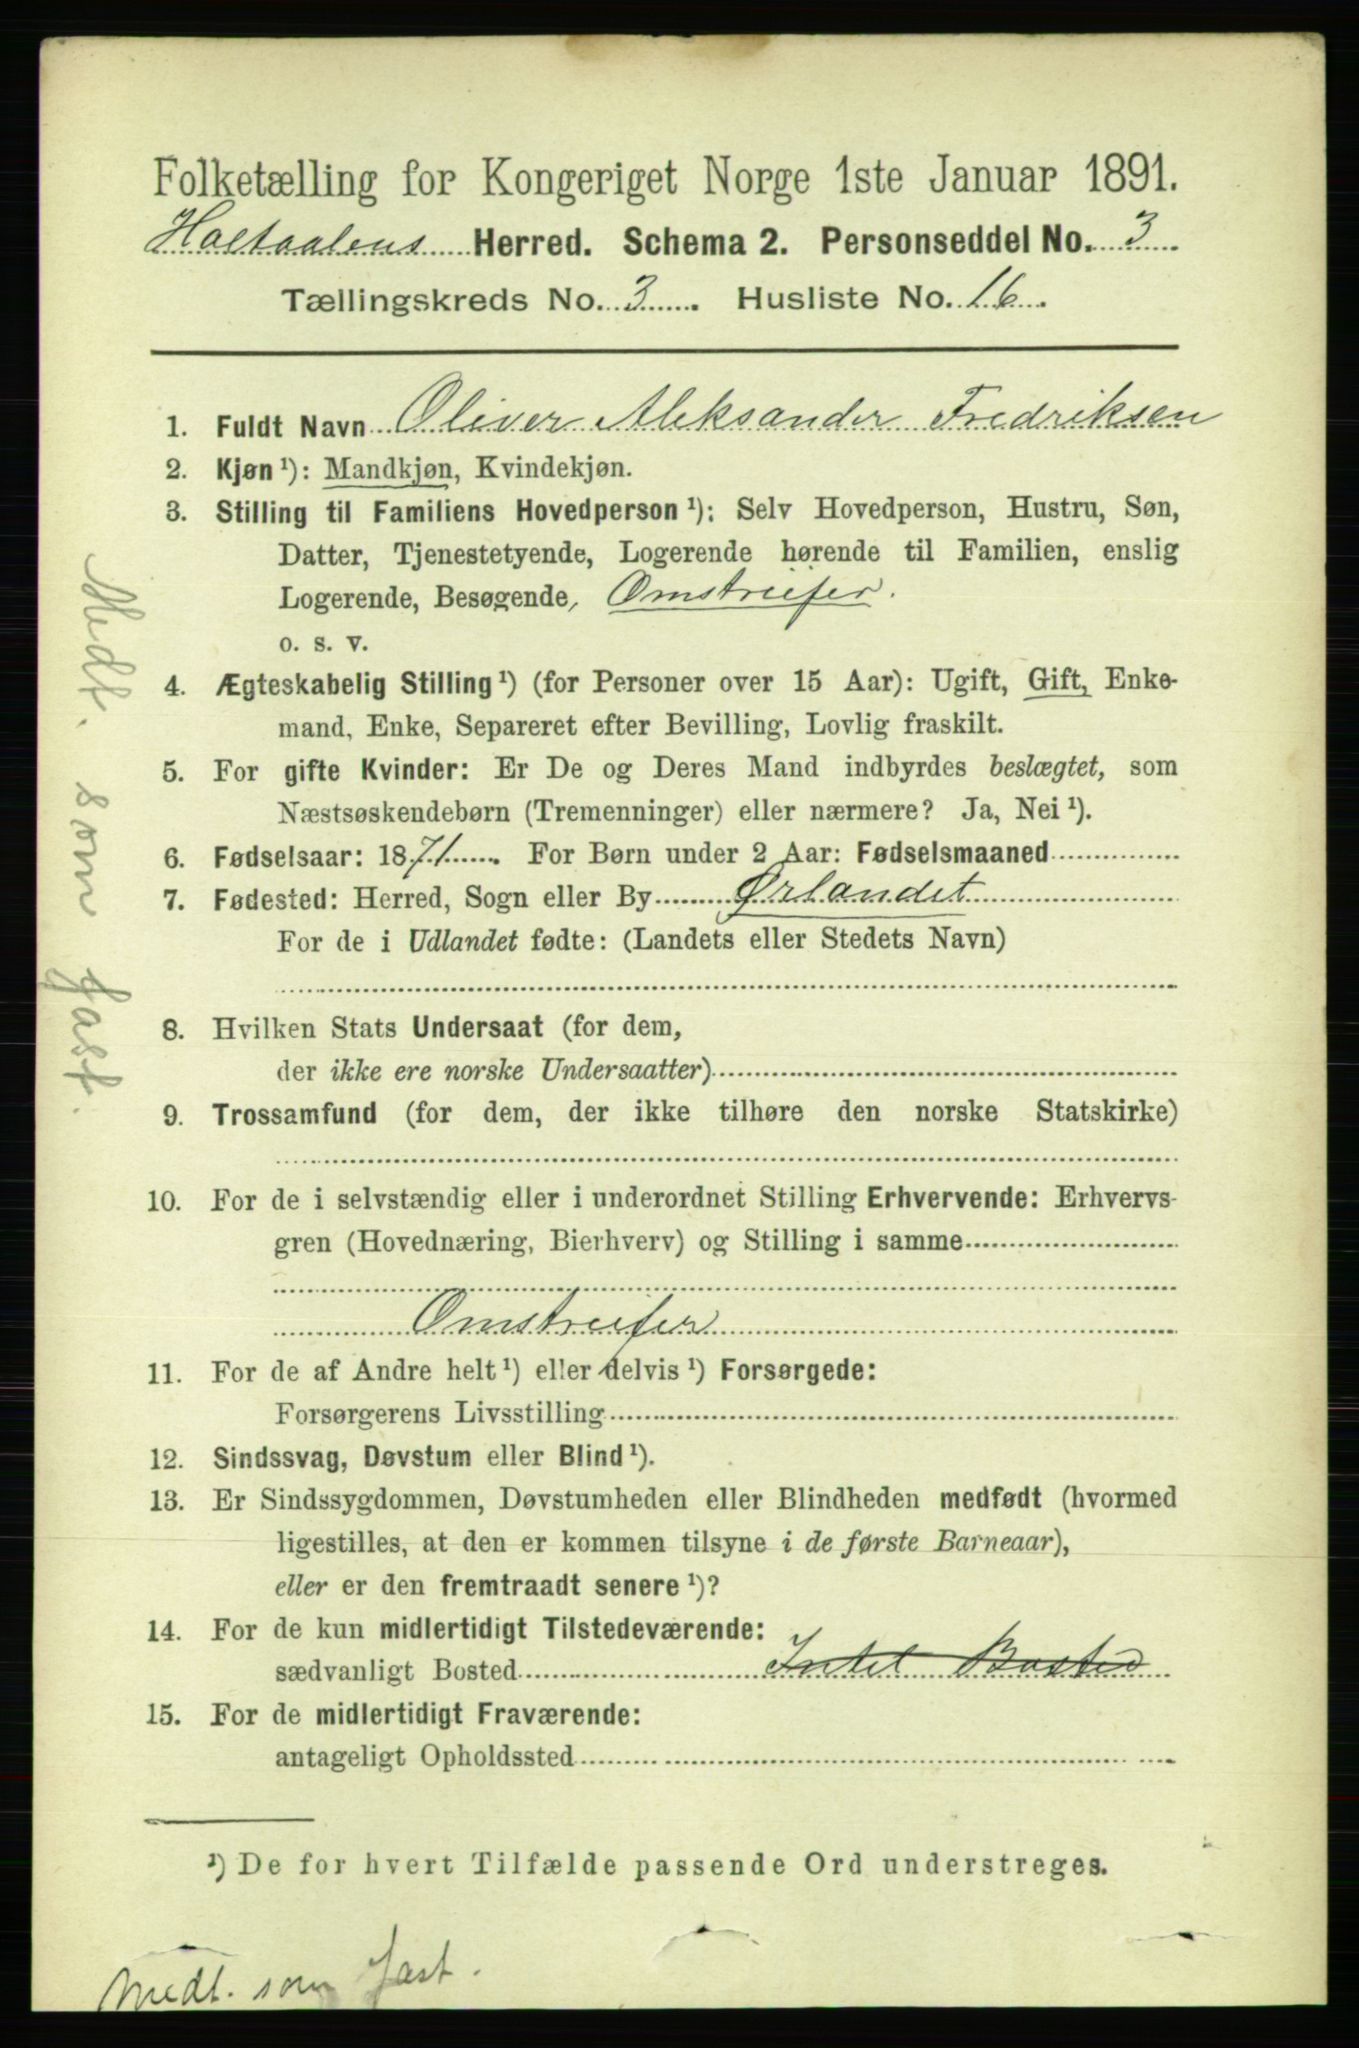 Folketælling for Kongeriget Norge 1ste Januar 1891.
Holtaalens Herred. Schema 2. Personseddel No. 3
Tællingskreds No. 3. Husliste No. 16.
1. Fuldt Navn Oliver Aleksander Fredriksen
2. Kjøn ¹): Mandkjøn, Kvindekjøn.
3. Stilling til Familiens Hovedperson ¹): Selv Hovedperson, Hustru, Søn,
Datter, Tjenestetyende, Logerende hørende til Familien, enslig
Logerende, Besøgende, Omstreifer.
o. s. v.
4. Ægteskabelig Stilling ¹) (for Personer over 15 Aar): Ugift, Gift, Enke-
mand, Enke, Separeret efter Bevilling, Lovlig fraskilt.
5. For gifte Kvinder: Er De og Deres Mand indbyrdes beslægtet, som
Næstsøskendebørn (Tremenninger) eller nærmere? Ja, Nei ¹).
6. Fødselsaar: 1871. For Børn under 2 Aar: Fødselsmaaned
7. Fødested: Herred, Sogn eller By Ørlandet
For de i Udlandet fødte: (Landets eller Stedets Navn)
8. Hvilken Stats Undersaat (for dem,
der ikke ere norske Undersaatter)
9. Trossamfund (for dem, der ikke tilhøre den norske Statskirke)
10. For de i selvstændig eller i underordnet Stilling Erhvervende: Erhvervs-
gren (Hovednæring, Bierhverv) og Stilling i samme
Omstreifer
11. For de af Andre helt ¹) eller delvis ¹) Forsørgede:
Forsørgerens Livsstilling
12. Sindssvag, Døvstum eller Blind ¹).
13. Er Sindssygdommen, Døvstumheden eller Blindheden medfødt (hvormed
ligestilles, at den er kommen tilsyne i de første Barneaar),
eller er den fremtraadt senere ¹)?
14. For de kun midlertidigt Tilstedeværende:
sædvanligt Bosted Intet Bosted
15. For de midlertidigt Fraværende:
antageligt Opholdssted
¹) De for hvert Tilfælde passende Ord understreges.
Medt. som fast.
Medt. som fast.